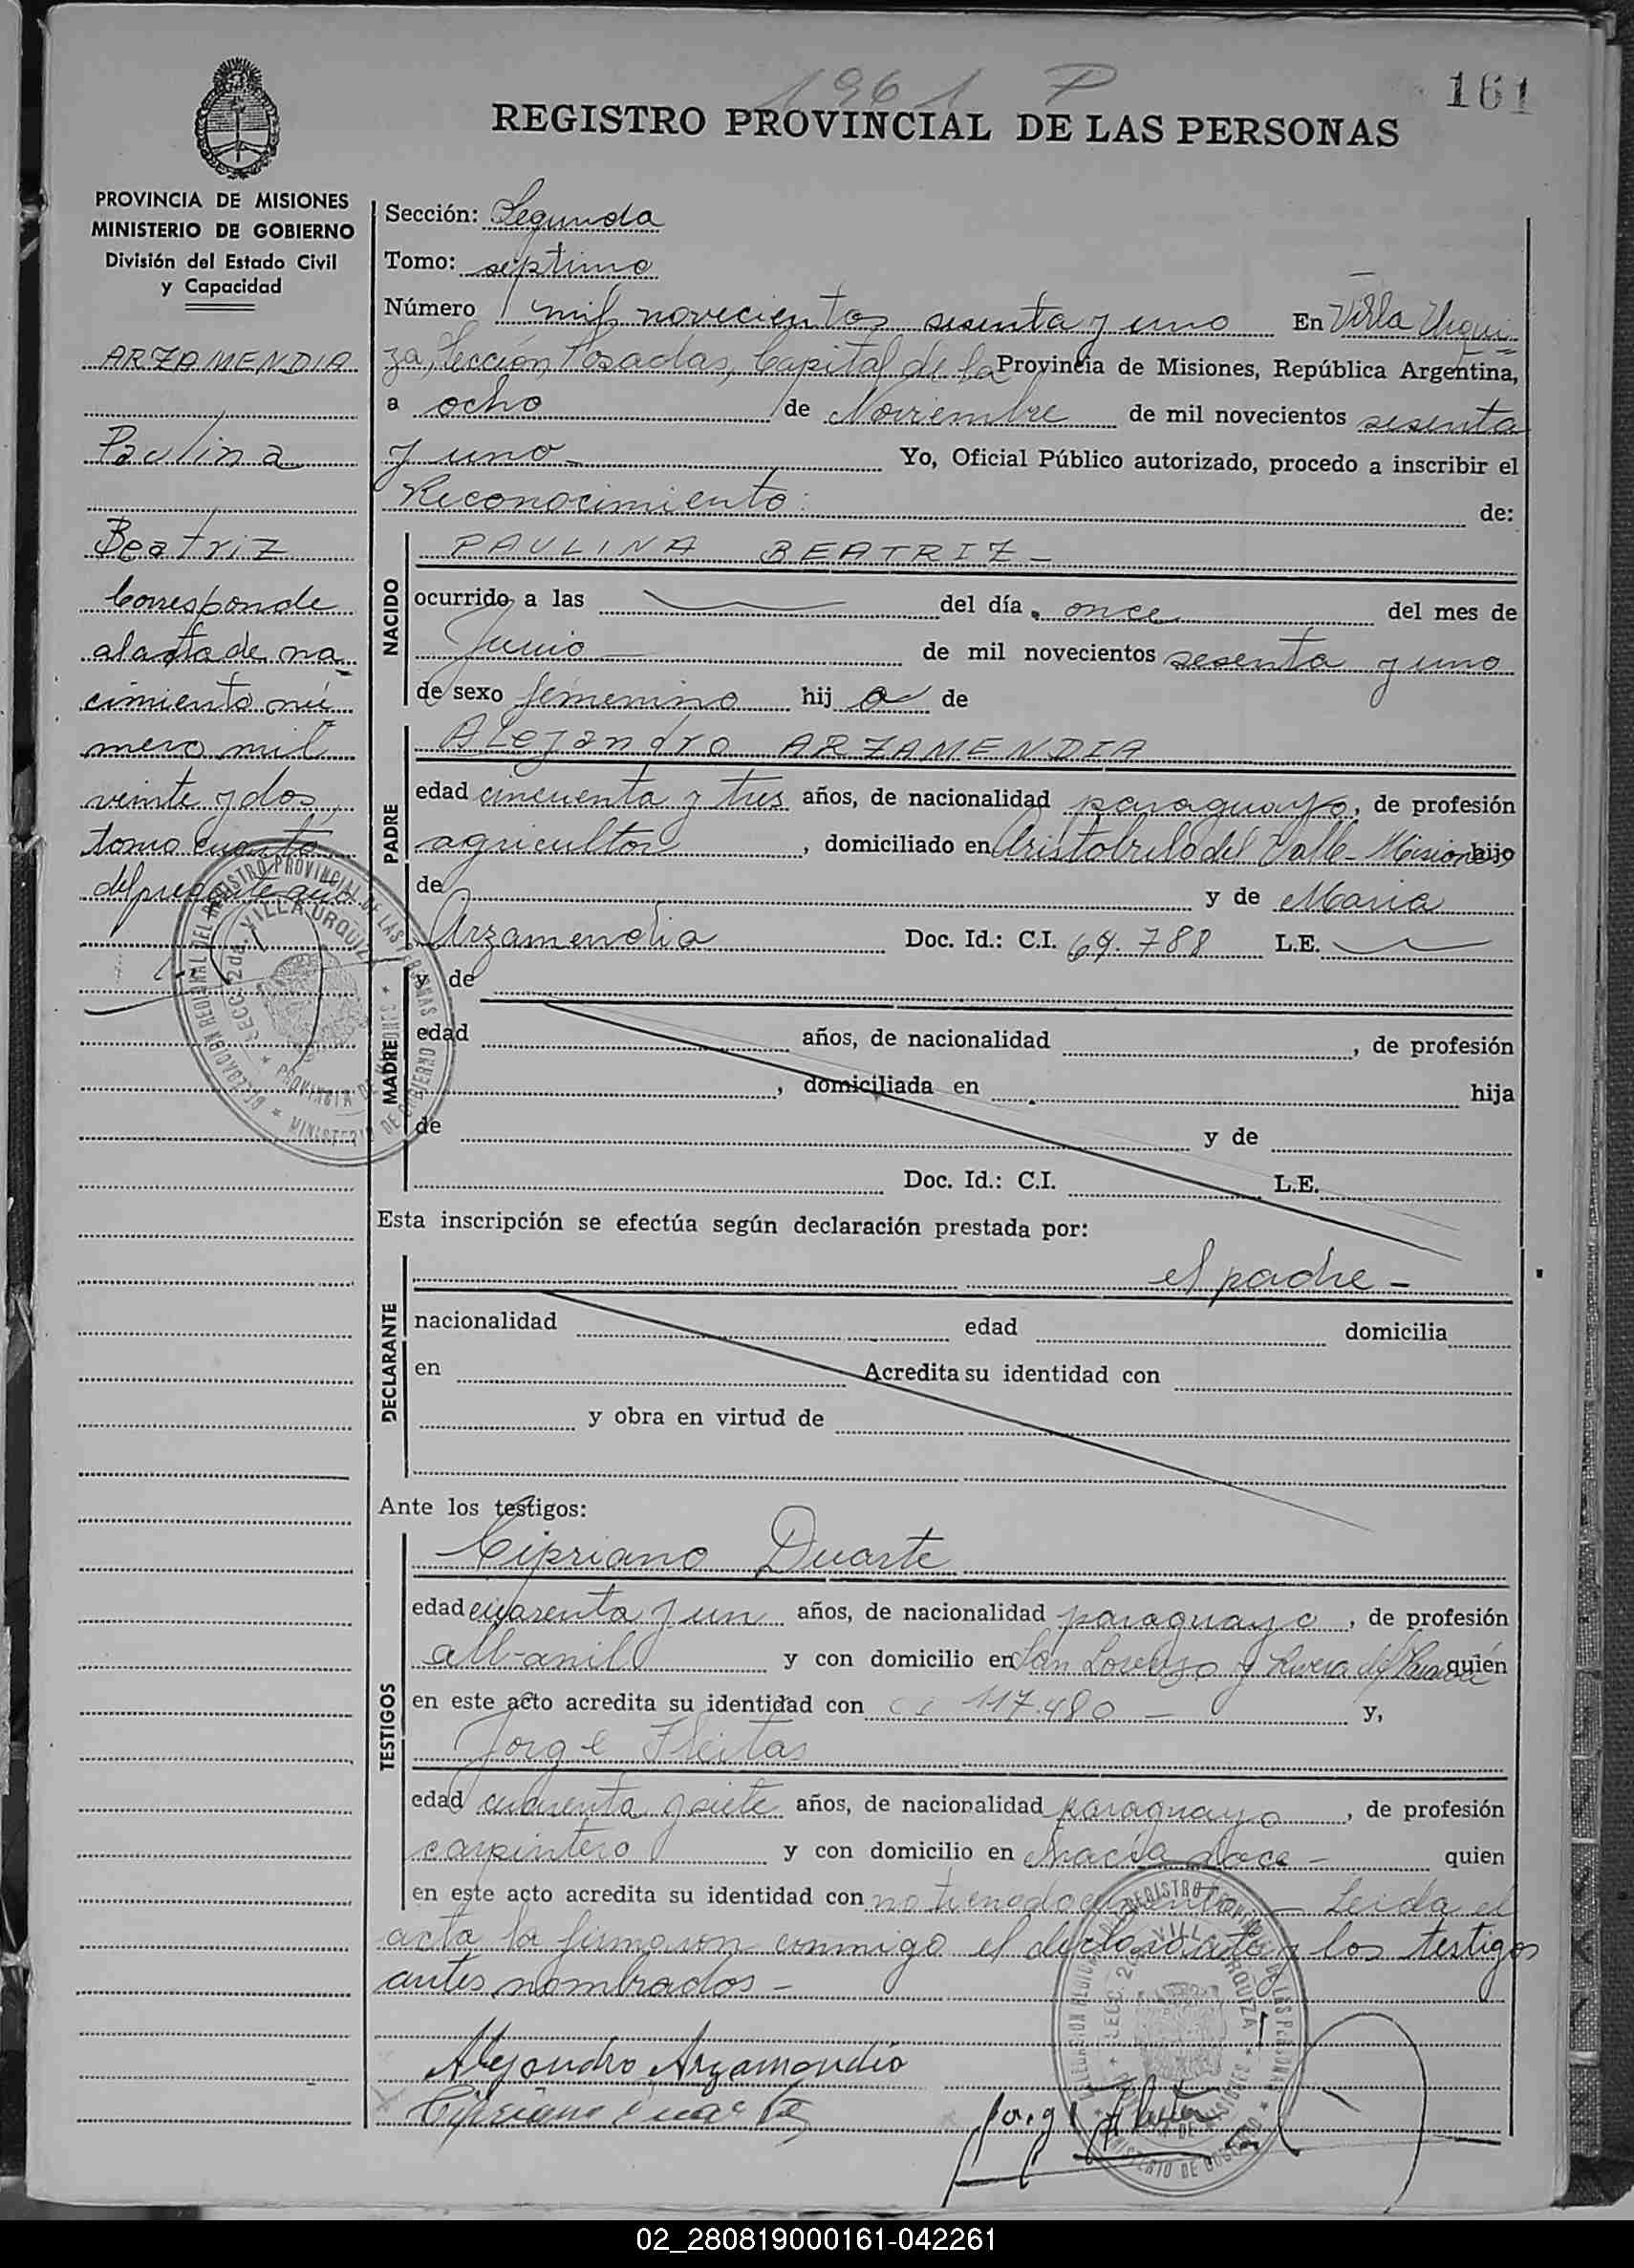 1961 P
161
REGISTRO PROVINCIAL DE LAS PERSONAS
PROVINCIA DE MISIONES
MINISTERIO DE GOBIERNO
División del Estado Civil
y Capacidad
ARZAMENDIA
Paulina
Beatriz
Corresponde
al acta de na
cimiento nú
mero mil
veinte y dos,
tomo cuarto
del presente año.
Sección: Segunda
Tomo: séptimo
Número mil novecientos sesenta y uno En Villa Urqui=
za, Sección Posadas, Capital de la Provincia de Misiones, República Argentina,
a ocho de Noviembre de mil novecientos sesenta
y uno- Yo, Oficial Público autorizado, procedo a inscribir el
Reconocimiento: de:
NACIDO
PAULINA BEATRIZ -
ocurrido a las del día once del mes de
Junio de mil novecientos sesenta y uno
de sexo femenino hij a de
PADRE
Alejandro ARZAMENDIA
edad cincuenta y tres años, de nacionalidad paraguayo, de profesión
agricultor, domiciliado en Aristobulo del Valle - Misiones hijo
de y de Maria
Arzamendia Doc. Id.: C.I. 69.788 L.E.
MADRE
y de
edad años, de nacionalidad , de profesión
, domiciliada en hija
de y de
Doc. Id.: C.I. L.E.
Esta inscripción se efectúa según declaración prestada por:
DECLARANTE
el padre -
nacionalidad edad domicilia
en Acredita su identidad con
y obra en virtud de
Ante los testigos:
TESTIGOS
Cipriano Duarte
edad cuarenta y un años, de nacionalidad paraguayo, de profesión
albanil y con domicilio en San Lorenzo y Rivera del Paraná quién
en este acto acredita su identidad con C I 117.480 - y,
Jorge Fleitas
edad cuarenta y siete años, de nacionalidad paraguayo, de profesión
carpintero y con domicilio en Chacra doce - quien
en este acto acredita su identidad con no tiene documento - Leida el
acta la firmaron conmigo el declarante y los testigos
antes nombrados -
Alejandro Arzamendia
Jorge Fleitas
02_280819000161-042261